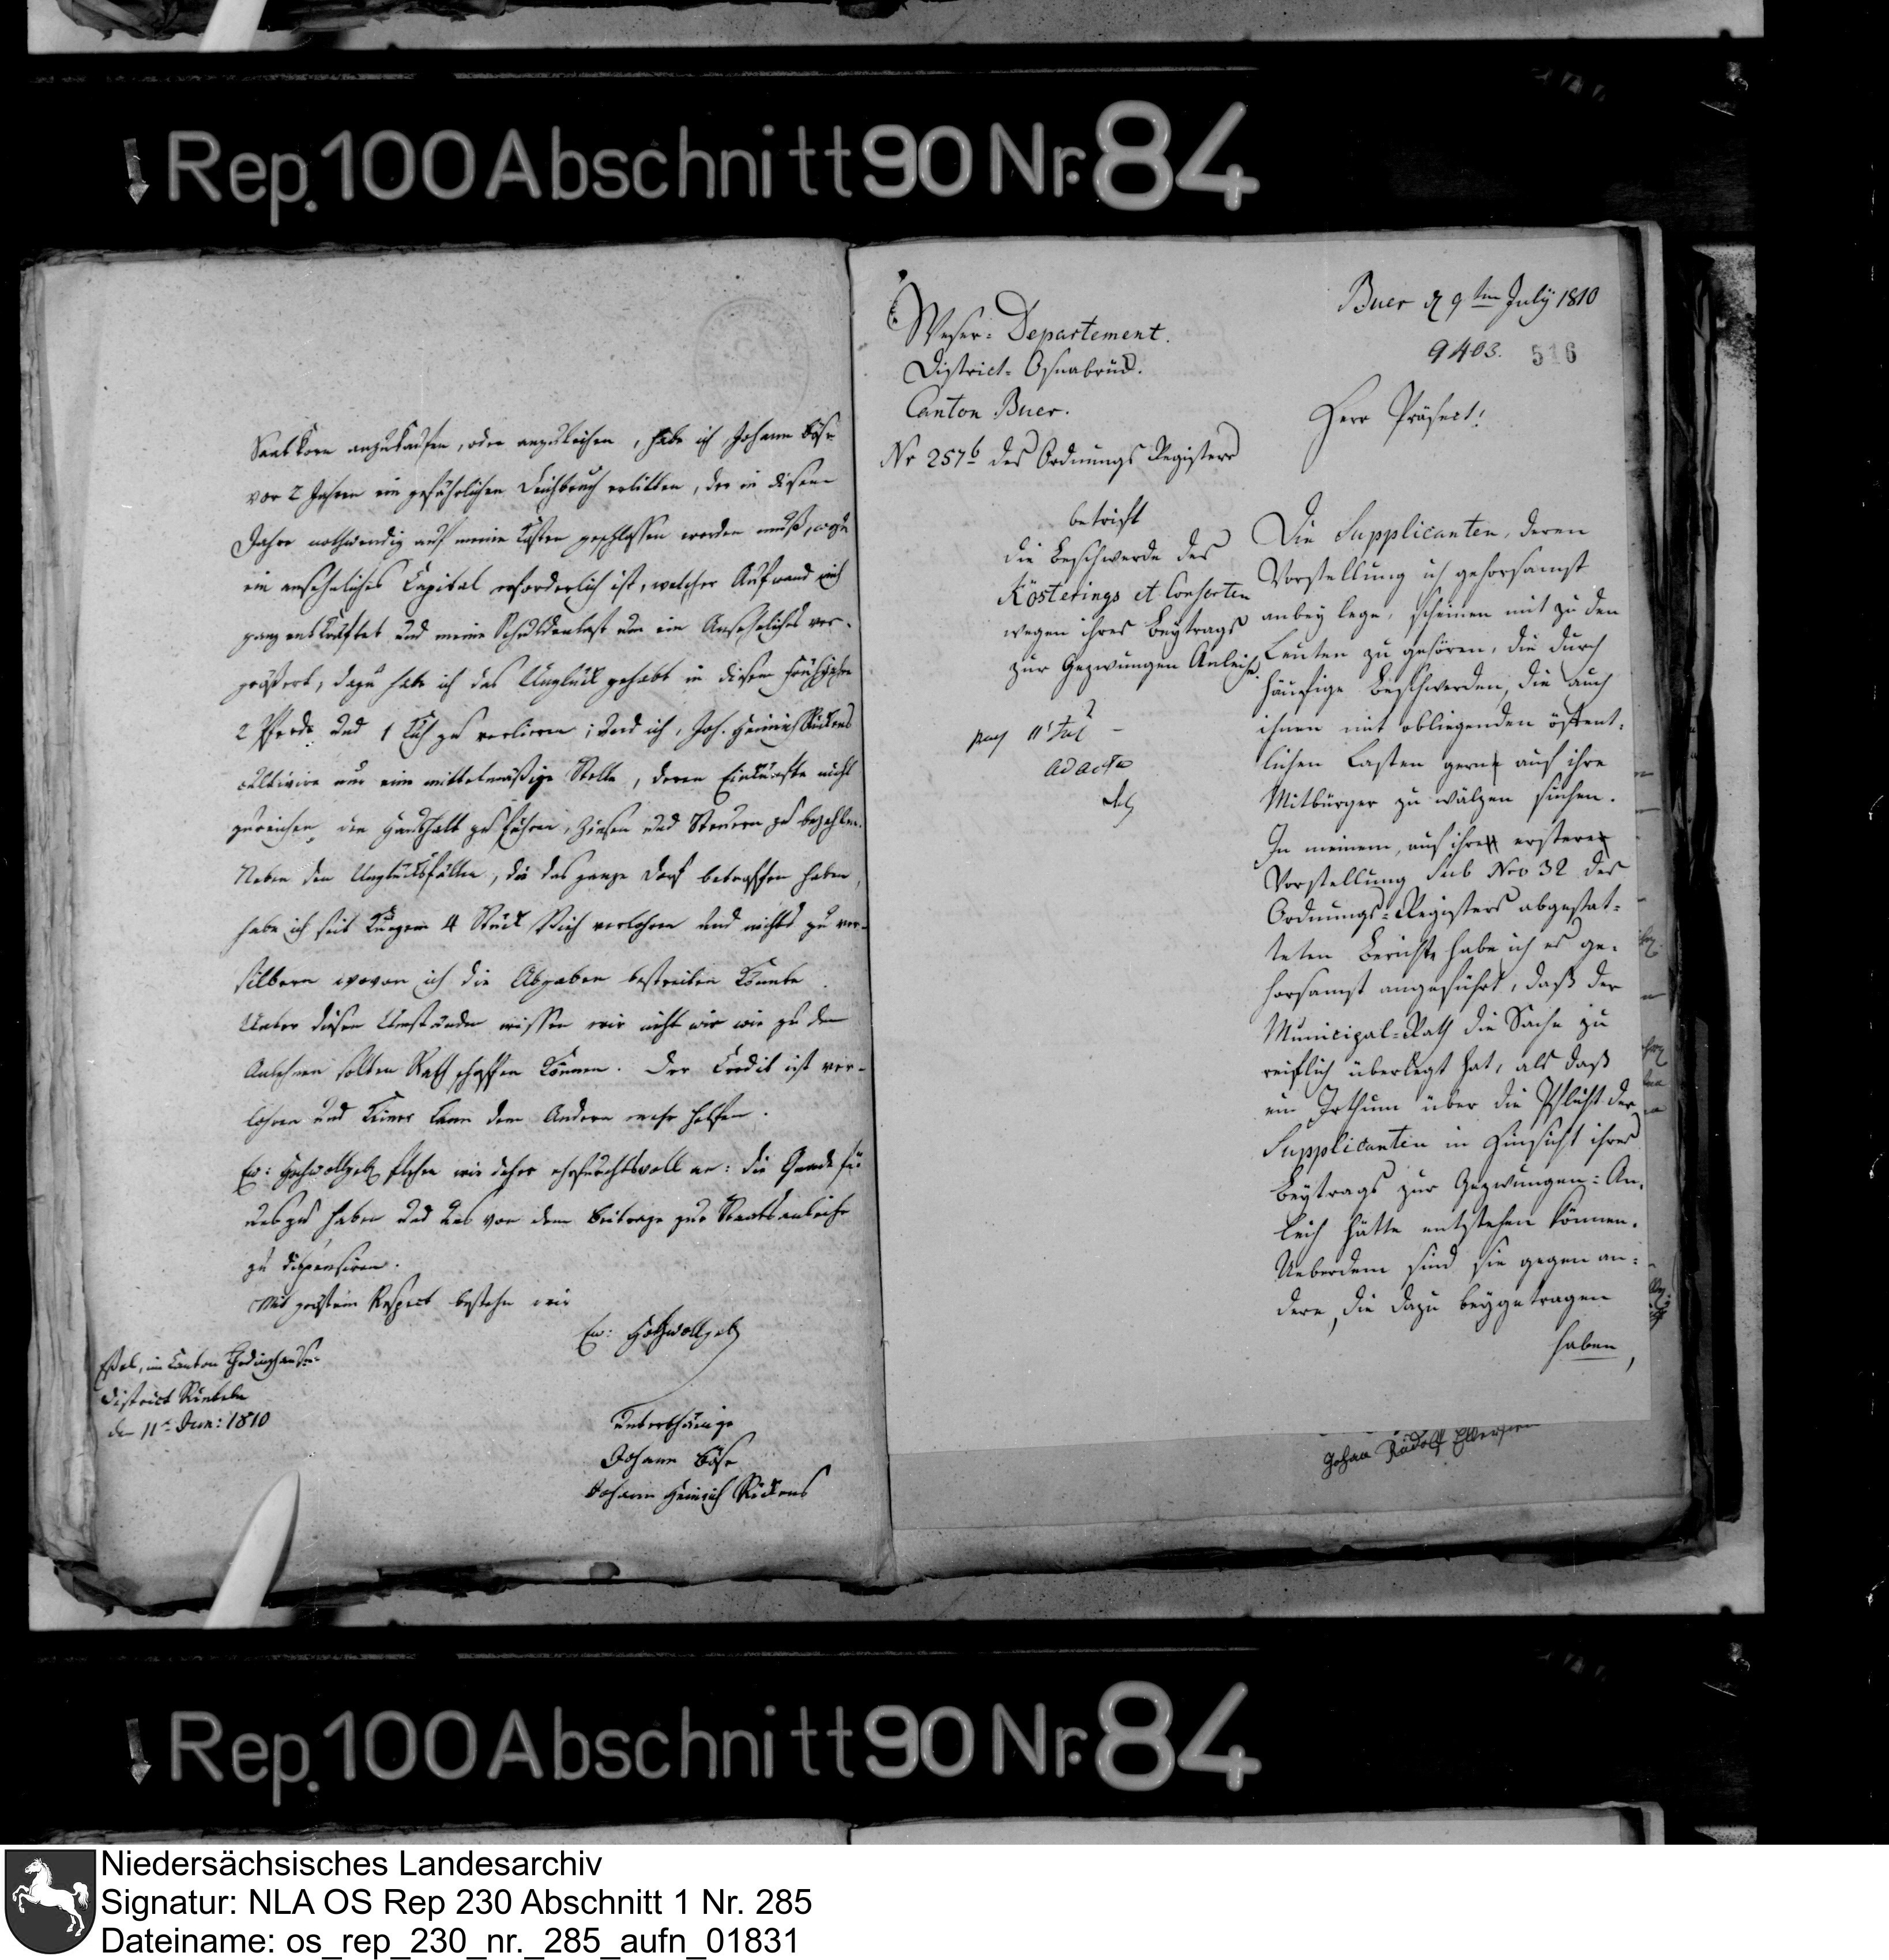 Rep. 100 Abschnitt 90 Nr. 84
Saatkorn anzukaufen, oder anzuleihen, habe ich Johann Böse
vor 2 Jahren ein gefährlichen Deichbruch erlitten, der in diesem
Jahre nothwendig auf meine Kosten geschlossen werden muß, wozu
ein ansehnliches Capital erforderlich ist, welcher Aufwand mich
ganz entkräftet und meine Schuldenlast um ein Ansehnliches ver-
größert, dazu habe ich das Unglück gehabt in diesem Frühjahre
2 Pferde und 1 Kuh zu verlieren; und ich, Joh. Heinrich Rickens
cultivire nur eine mittelmäßige Stelle, deren Einkünfte nicht
zureichen, den Haushalt zu führen, Zinsen und Steuern zu bezahlen.
Neben den Unglücksfällen, die das ganze Dorf betroffen haben,
habe ich seit Kurzem 4 Stück Vieh verlohren und nichts zu ver-
silbern wovon ich die Abgaben bestreiten könnte.
Unter diesen Umständen wissen wir nicht wir wie zu den
Anlehnen sollten Rath schaffen können. Der Credit ist ver-
lohren und Keiner kann dem Andern mehr helfen.
Ew: Hochwollgeb flehen wir daher ehrfurchtsvoll an: die Gnade für
uns zu haben und uns von dem Beitrage zur Staatsanleihe
zu dispensiren.
Mit größtem Respect bestehn wir
Ew: Hochwollgeb
im Canton Thedinghausen
District
den 11ten Jun: 1810
unterthänige
Johann Böse
Johann Heinrich Rickens
Buer d 9ten July 1810
9403. 516
Weser-Departement.
District-Osnabrück.
Canton Buer.
Nr 257b des Ordnungs Registers
Herr Präfect!
betrift
die Beschwerde des
Kösterings et Consorten
wegen ihres Beytrags
zur Gezwungen Anleihe.
11 Jul
ad acta
Die Supplicanten, deren
Vorstellung ich gehorsamst
anbey lege, scheinen mit zu den
Leuten zu gehören, die durch
häufige Beschwerden, die auch
ihnen mit obliegenden öffent-
lichen Lasten gern auf ihre
Mitbürger zu wälzen suchen.
In meinem, auf ihre erstere
Vorstellung sub Nro 32 des
Ordnungs-Registers abgestat-
teten Berichte habe ich es ge-
horsamst angeführt, daß der
Municipal-Rath die Sache zu
reiflich überlegt hat, als daß
ein Irthum über die Pflicht der
Supplicanten in Hinsicht ihres
Beytrags zur Gezwungen-An-
leih hätte entstehen können.
Ueberdem sind sie gegen an-
dere, die dazu beygetragen
haben,
Johan Rudolf
Rep. 100 Abschnitt 90 Nr. 84
Niedersächsisches Landesarchiv
Signatur: NLA OS Rep 230 Abschnitt 1 Nr. 285
Dateiname: os_rep_230_nr._285_aufn_01831